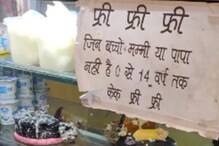 फ्री फ्री फ्री
जिन बच्चो मम्मी या पापा
नही है 0 से 14 वर्ष तक
केक फ्री फ्री